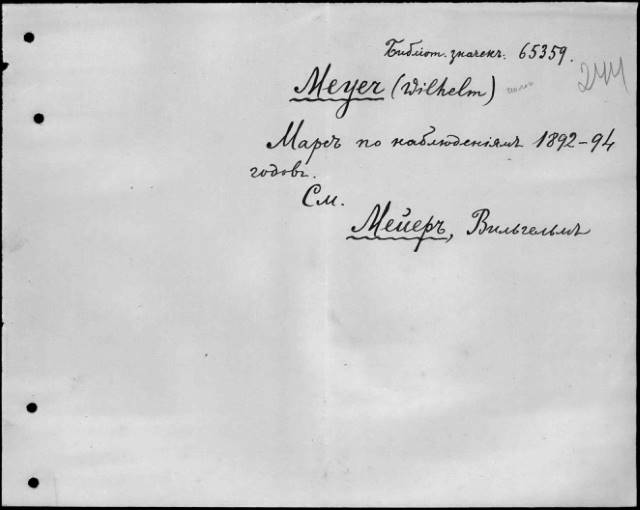 Библіот. значекъ. 65359.
244
Meyer (Wilhelm)
Марсъ по наблюденіямъ 1892-94
годовъ.
См.
Мейеръ, Вильгельмъ